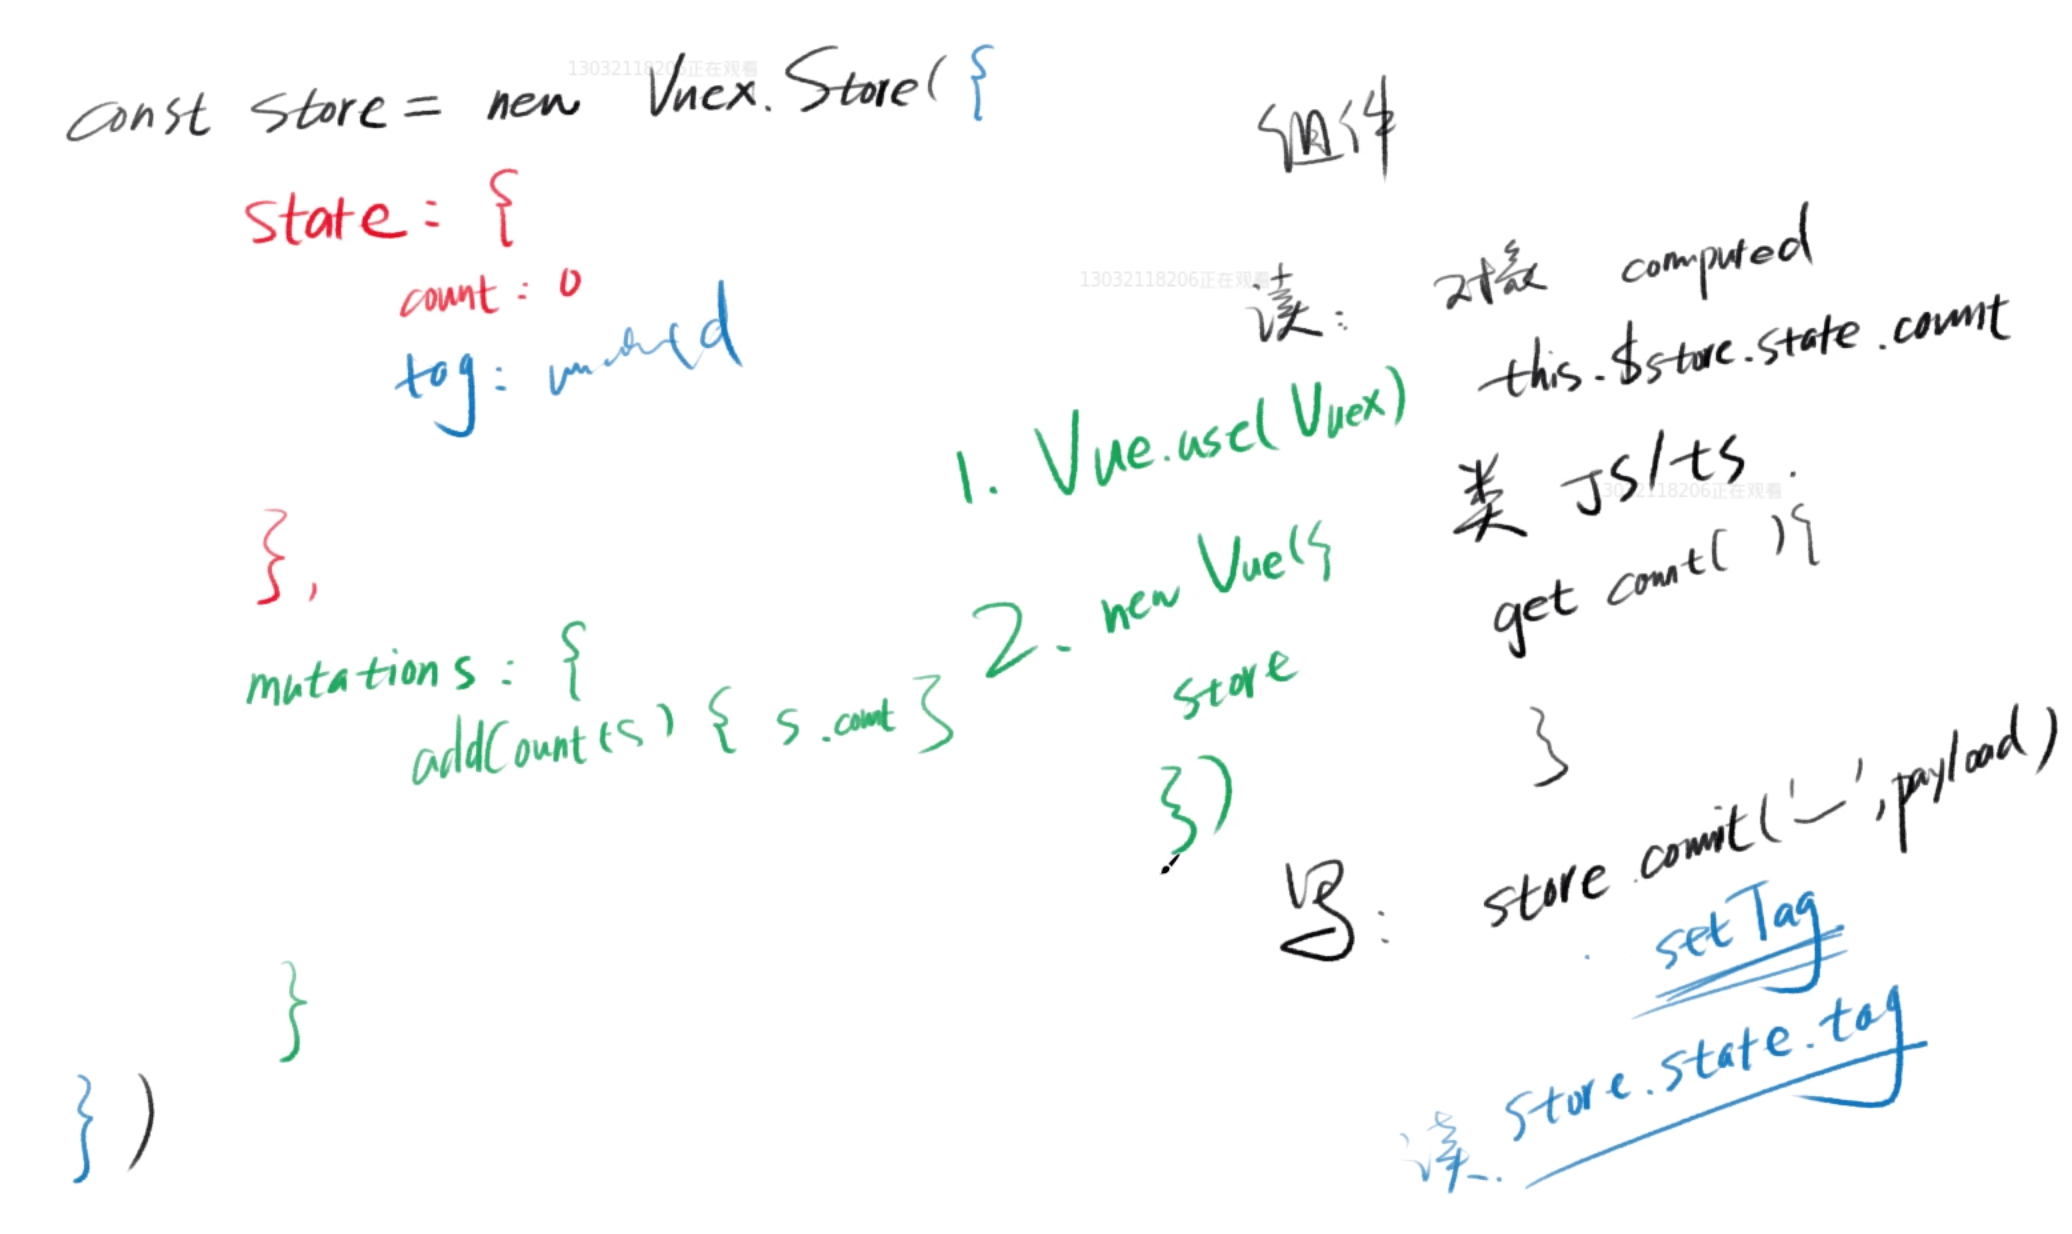 const store = new Vuex.Store({
state: {
count: 0
tag:
},
mutations: {
addCount(s) { s.count }
}
})
1. Vue.use(Vuex)
2. new Vue({
store
})
组件
读: 对象 computed
this.$store.state.count
类 JS/ts
get count( ){
}
写: store.commit('—', payload)
setTag
读. store.state.tag
13032118206正在观看
13032118206正在观看
13032118206正在观看